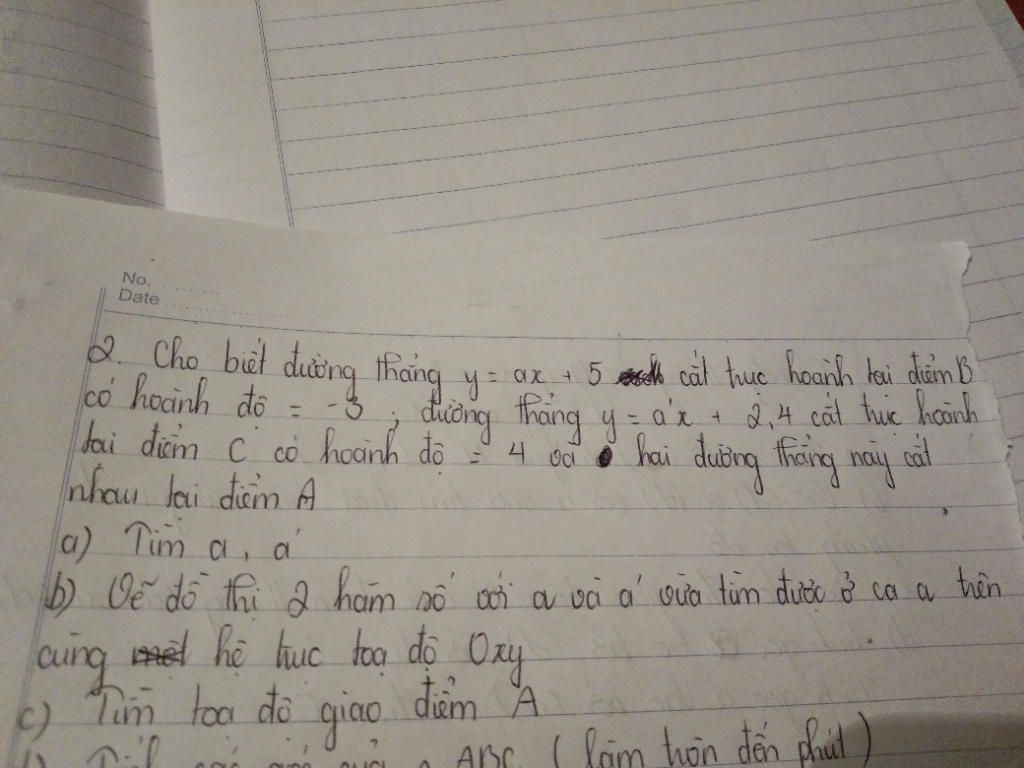 No.
Date
2. Cho biết đường thẳng y = ax + 5 cắt trục hoành tại điểm B
có hoành độ = -3 ; đường thẳng y = a'x + 2,4 cắt trục hoành
tại điểm C có hoành độ = 4 và hai đường thẳng này cắt
nhau tại điểm A
a) Tìm a, a'
b) Vẽ đồ thị 2 hàm số với a và a' vừa tìm được ở ca a trên
cùng hệ trục toạ độ Oxy
c) Tìm toạ độ giao điểm A
ABC (làm tròn đến phút)